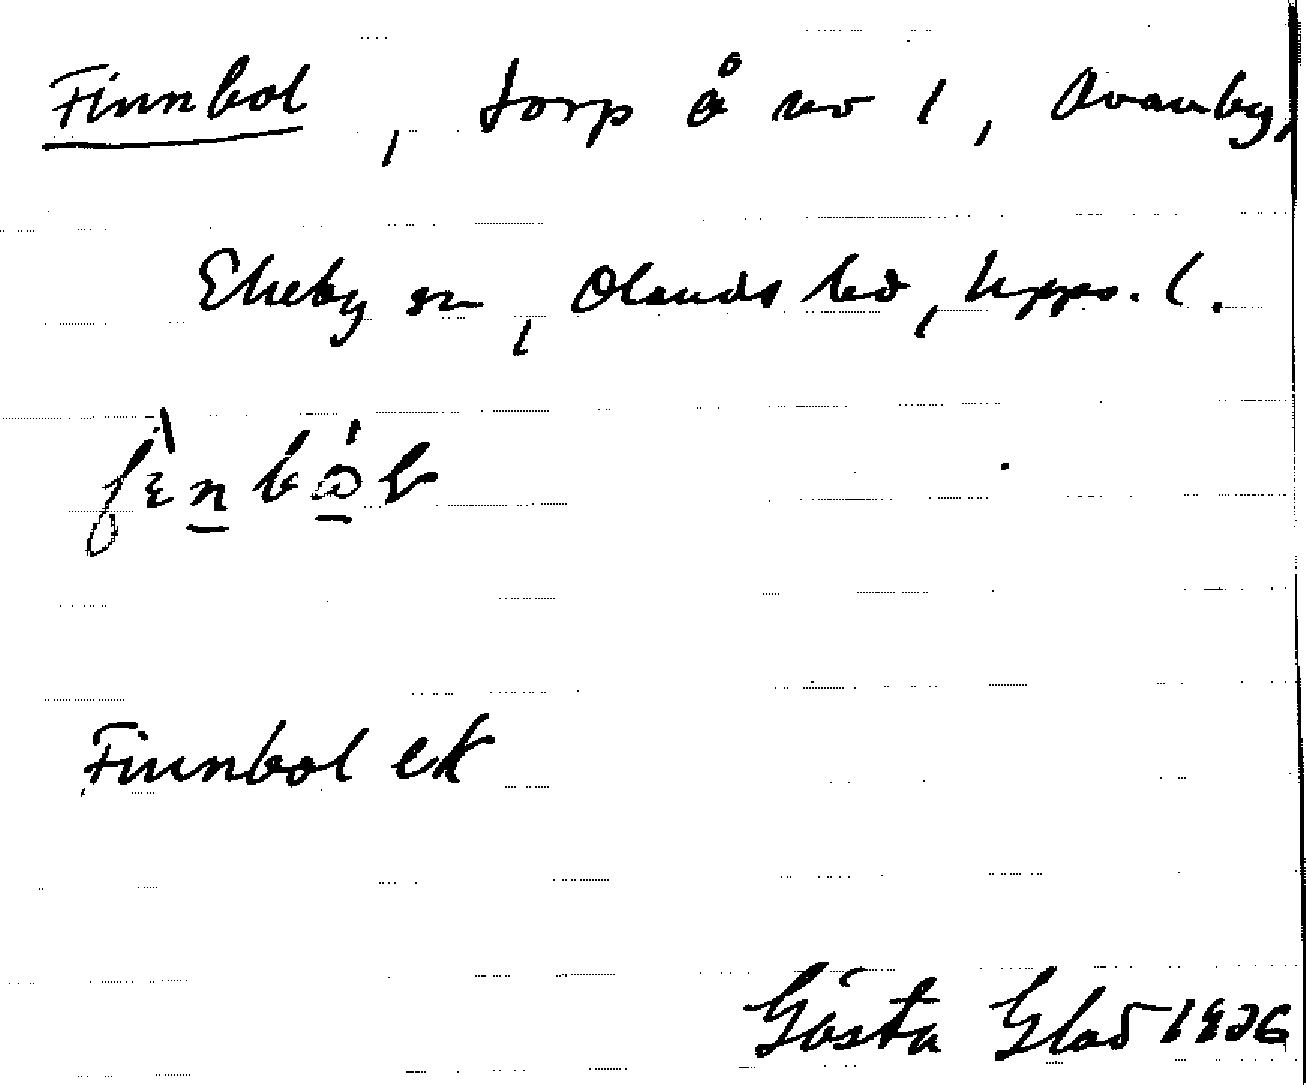 Finnbol, torp å nr 1, Ovanby,
Ekeby sn, Olands hd, Upps. l.
Finnbol ek
Gösta Glad 1926